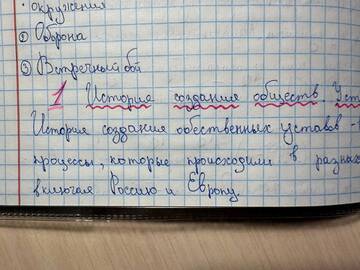 окружения
② Оборона
③ Встречный бой
1 История создания обществ. Уст
История создания обественных уставов -
процессы, которые происходили в разных
включая Россию и Европу.